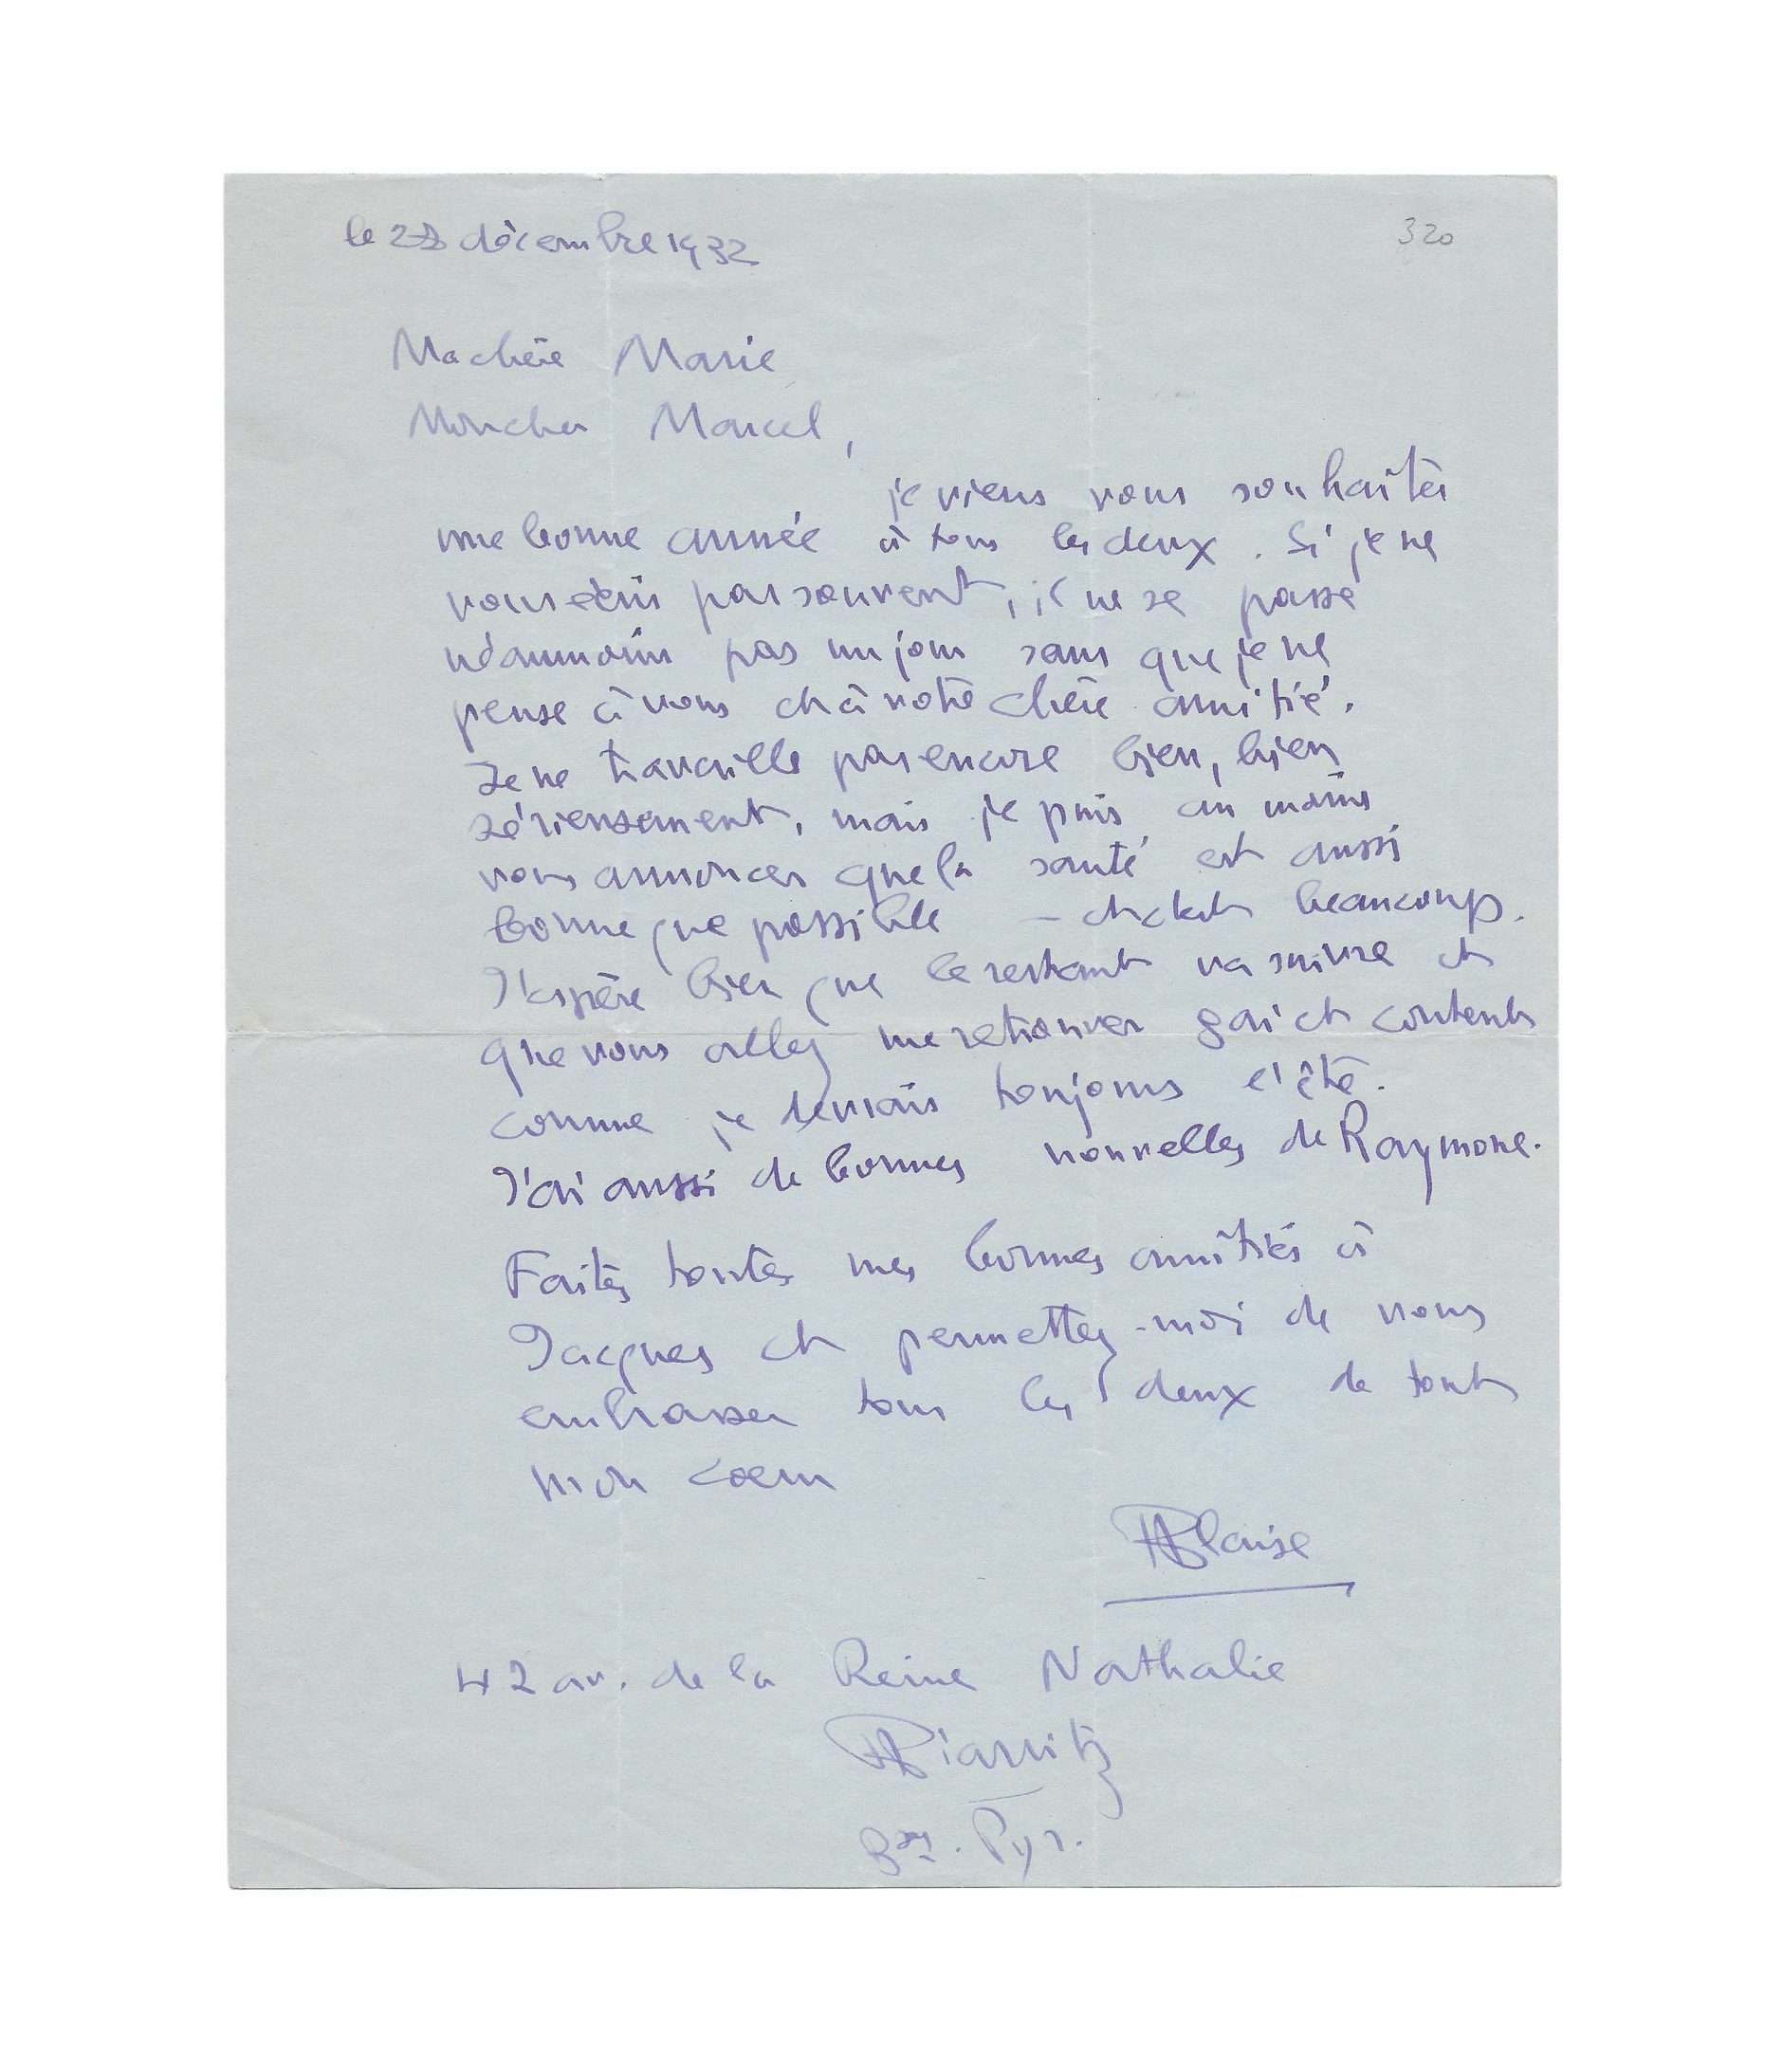 le 28 décembre 1932
320
Ma chère Marie
Mon cher Marcel,
je viens vous souhaiter
une bonne année à tous les deux. Si je ne
vous écris pas souvent, il ne se passe
néanmoins pas un jour sans que je ne
pense à vous et à votre chère amitié.
Je ne travaille pas encore bien, bien
sérieusement, mais je puis au moins
vous annoncer que la santé est aussi
bonne que possible – et c'est beaucoup.
J'espère bien que le restant va suivre et
que vous allez me retrouver gai et content
comme je devrais toujours l'être.
J'ai aussi de bonnes nouvelles de Raymone.
Faites toutes mes bonnes amitiés à
Jacques et permettez-moi de vous
embrasser tous les deux de tout
mon coeur
Blaise
42 av. de la Reine Nathalie
Biarritz
Bses. Pyr.